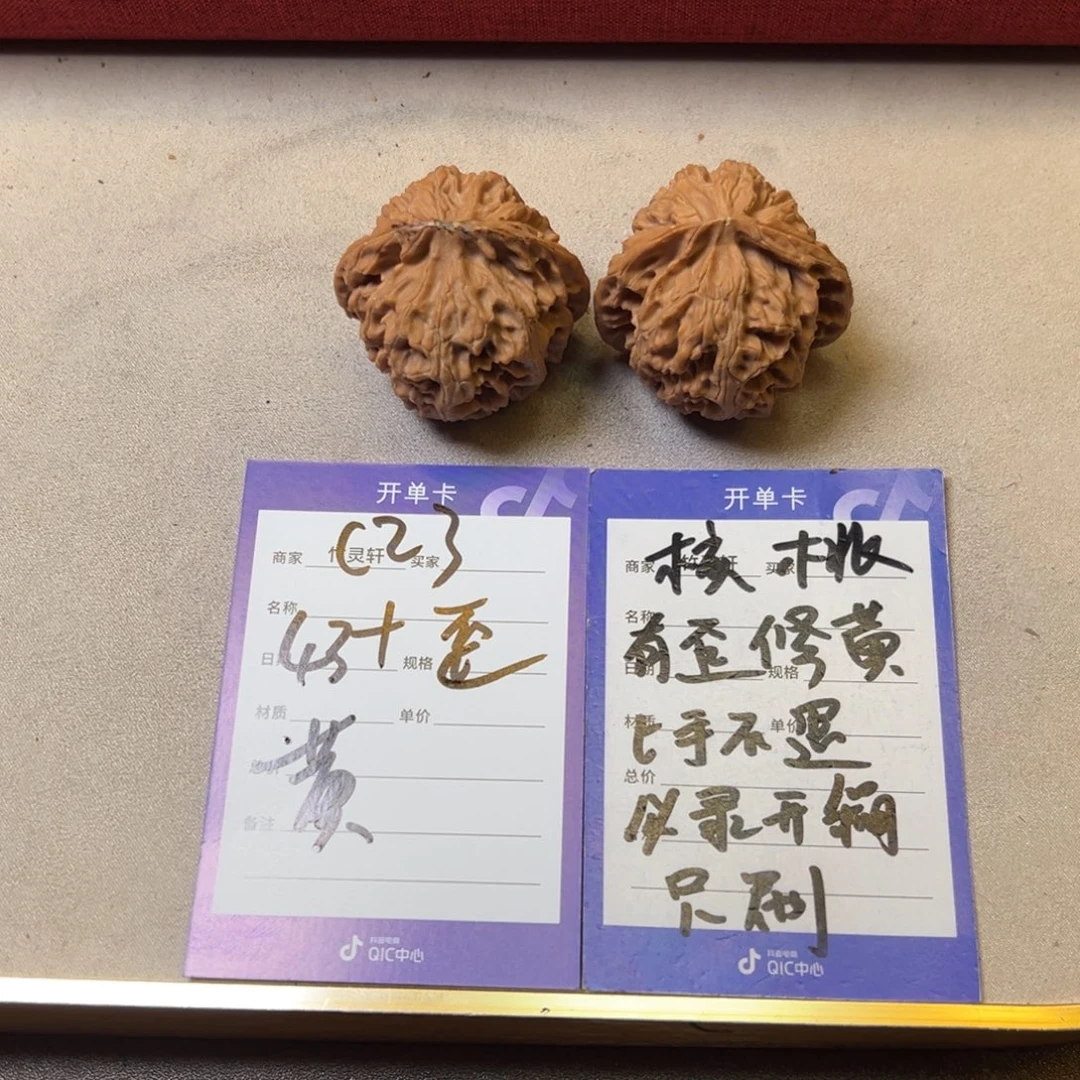 开单卡
C23
商家 竹灵轩 买家
名称
43+ 歪
日期 规格
黄
材质 单价
总价
备注
抖音电商
QIC中心
开单卡
核桃
商家 竹灵轩 买家
名称
有歪修黄
日期 规格
上手不退
材质 单价
总价
必录开箱
只刷
抖音电商
QIC中心